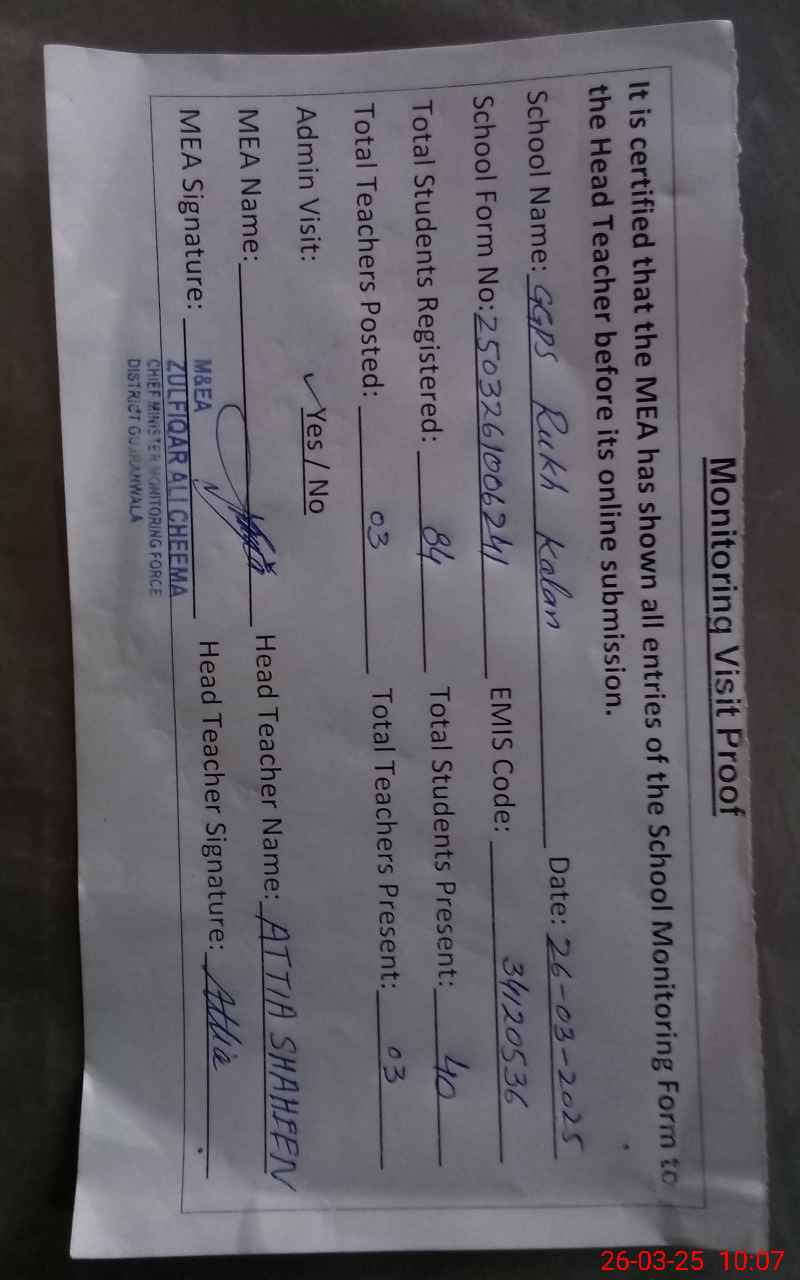 Monitoring Visit Proof
It is certified that the MEA has shown all entries of the School Monitoring Form to
the Head Teacher before its online submission.
School Name: GGPS Rukh Kalan Date: 26-03-2025
School Form No: 2503261006241 EMIS Code: 34120536
Total Students Registered: 84 Total Students Present: 40
Total Teachers Posted: 03 Total Teachers Present: 03
Admin Visit: ✓Yes / No
MEA Name: Head Teacher Name: ATTIA SHAHEEN
MEA Signature: Head Teacher Signature: Attia
M&EA
ZULFIQAR ALI CHEEMA
CHIEF MINISTER MONITORING FORCE
DISTRICT GUJRANWALA
26-03-25 10:07